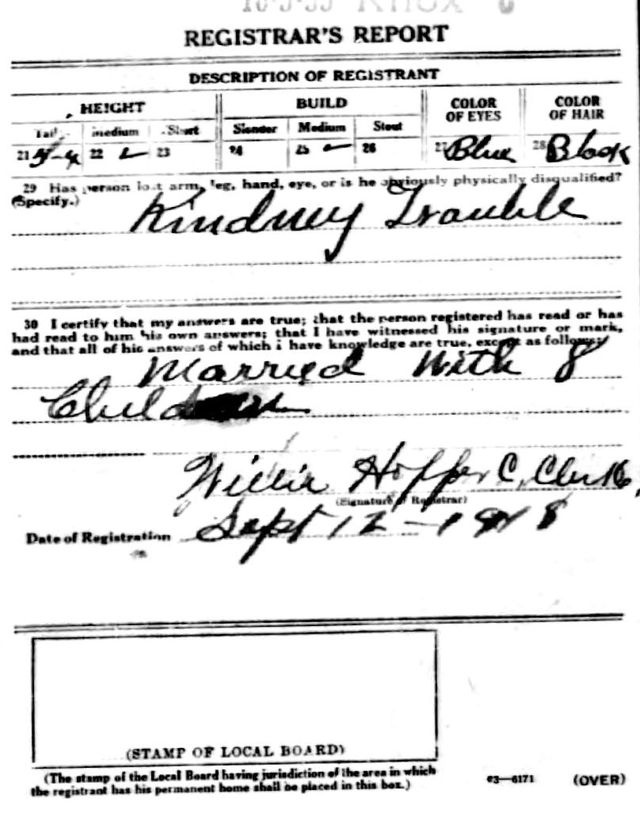 KNOX
REGISTRAR'S REPORT
DESCRIPTION OF REGISTRANT
HEIGHT BUILD COLOR OF EYES COLOR OF HAIR
Tall medium Short Slender Medium Stout
21 22 23 24 25 26 27 Blue 28 Black
29 Has person lost arm, leg, hand, eye, or is he obviously physically disqualified?
(Specify.) Kindney Trouble
30 I certify that my answers are true; that the person registered has read or has
had read to him his own answers; that I have witnessed his signature or mark,
and that all of his answers of which I have knowledge are true, except as follows:
Married With 8
Children
Willie Hopper C. Clerk
(Signature of Registrar)
Date of Registration Sept 12 - 1918
(STAMP OF LOCAL BOARD)
(The stamp of the Local Board having jurisdiction of the area in which
the registrant has his permanent home shall be placed in this box.)
03—6171 (OVER)